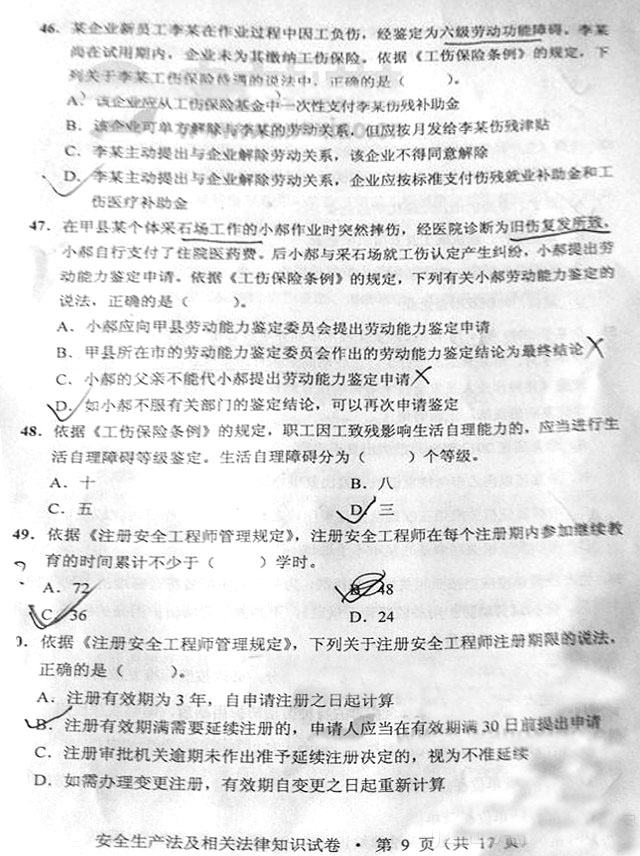 46. 某企业新员工李某在作业过程中因工负伤,经鉴定为六级劳动功能障碍,李某
尚在试用期内,企业未为其缴纳工伤保险。依据《工伤保险条例》的规定,下
列关于李某工伤保险待遇的说法中,正确的是( )。
A. 该企业应从工伤保险基金中一次性支付李某伤残补助金
B. 该企业可单方解除与李某的劳动关系,但应按月发给李某伤残津贴
C. 李某主动提出与企业解除劳动关系,该企业不得同意解除
D. 李某主动提出与企业解除劳动关系,企业应按标准支付伤残就业补助金和工
伤医疗补助金
47. 在甲县某个体采石场工作的小郝作业时突然摔伤,经医院诊断为旧伤复发所致,
小郝自行支付了住院医药费。后小郝与采石场就工伤认定产生纠纷,小郝提出劳
动能力鉴定申请。依据《工伤保险条例》的规定,下列有关小郝劳动能力鉴定的
说法,正确的是( )。
A. 小郝应向甲县劳动能力鉴定委员会提出劳动能力鉴定申请
B. 甲县所在市的劳动能力鉴定委员会作出的劳动能力鉴定结论为最终结论
C. 小郝的父亲不能代小郝提出劳动能力鉴定申请
D. 如小郝不服有关部门的鉴定结论,可以再次申请鉴定
48. 依据《工伤保险条例》的规定,职工因工致残影响生活自理能力的,应当进行生
活自理障碍等级鉴定。生活自理障碍分为( )个等级。
A. 十 B. 八
C. 五 D. 三
49. 依据《注册安全工程师管理规定》,注册安全工程师在每个注册期内参加继续教
育的时间累计不少于( )学时。
A. 72 B. 48
C. 36 D. 24
0. 依据《注册安全工程师管理规定》,下列关于注册安全工程师注册期限的说法,
正确的是( )。
A. 注册有效期为 3 年,自申请注册之日起计算
B. 注册有效期满需要延续注册的,申请人应当在有效期满 30 日前提出申请
C. 注册审批机关逾期未作出准予延续注册决定的,视为不准延续
D. 如需办理变更注册,有效期自变更之日起重新计算
安全生产法及相关法律知识试卷 · 第 9 页(共 17 页)